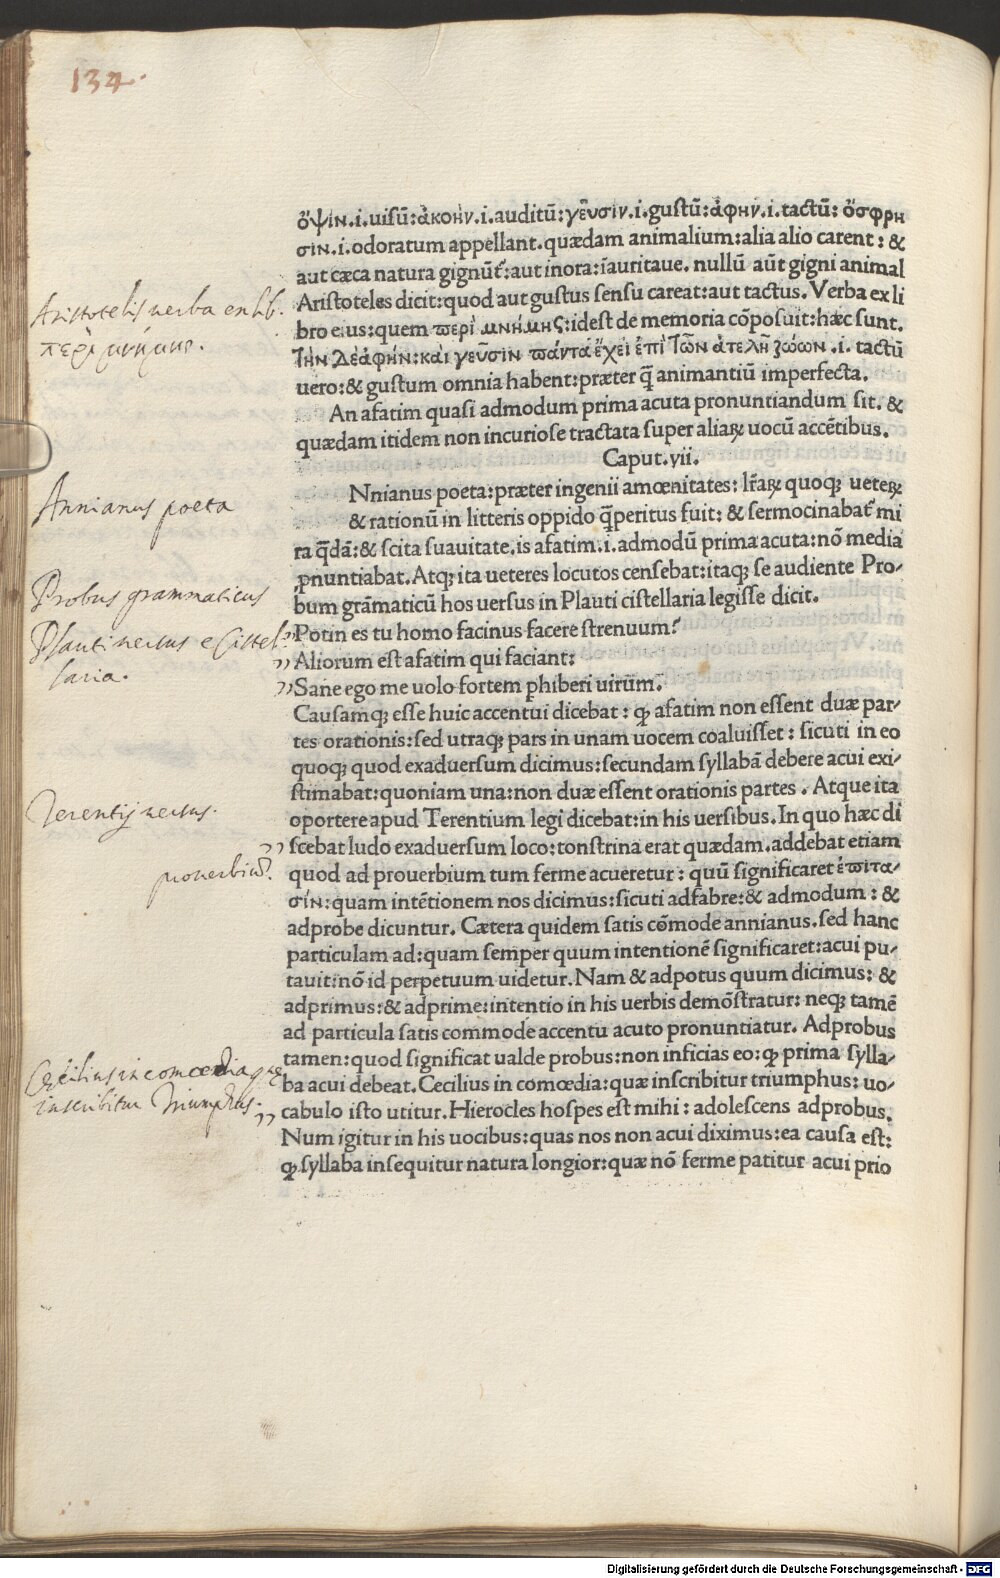 134.
ὄψιν.i.uisū:ἀκοήν.i.auditū:γεῦσιν.i.gustū:ἀφην.i.tactū: ὄσφρη
σιν.i.odoratum appellant.quædam animalium:alia alio carent: &
aut cæca natura gignūt̃:aut inora:īauritaue. nullū aūt gigni animal
Aristoteles dicit:quod aut gustus sensu careat:aut tactus. Verba ex li
bro eius:quem περὶ μνήμης:idest de memoria cōposuit:hæc sunt.
Τὴν Δὲἀφήν:καὶ γεῦσιν πάντα ἔχει ἐπὶ Τῶν ἀτελῆ ζώων .i. tactū
uero:& gustum omnia habent:præter q̃ animantiū imperfecta.
An afatim quasi admodum prima acuta pronuntiandum sit. &
quædam itidem non incuriose tractata super aliaꝝ uocū accētibus.
Caput.vii.
Nnianus poeta:præter ingenii amœnitates: lr̃aꝝ quoqꝫ ueteꝝ
& rationū in litteris oppido q̃peritus fuit: & sermocinabat̃ mi
ra q̃dā:& scita suauitate.is afatim.i.admodū prima acuta:nō media
ꝓnuntiabat.Atqꝫ ita ueteres locutos censebat:itaqꝫ se audiente Pro-
bum grāmaticū hos uersus in Plauti cistellaria legisse dicit.
Potin es tu homo facinus facere strenuum?
Aliorum est afatim qui faciant:
Sane ego me uolo fortem phiberi uirūm.
Causamqꝫ esse huic accentui dicebat: qꝫ afatim non essent duæ par-
tes orationis:sed utraqꝫ pars in unam uocem coaluisset: sicuti in eo
quoqꝫ quod exaduersum dicimus:secundam syllabā debere acui exi-
stimabat:quoniam una:non duæ essent orationis partes. Atque ita
oportere apud Terentium legi dicebat:in his uersibus. In quo hæc di
scebat ludo exaduersum loco:tonstrina erat quædam.addebat etiam
quod ad prouerbium tum ferme acueretur: quū significaret ἐπίτα-
σιν:quam intētionem nos dicimus:sicuti adfabre:& admodum: &
adprobe dicuntur. Cætera quidem satis cōmode annianus.sed hanc
particulam ad:quam semper quum intentionē significaret:acui pu-
tauit:nō id perpetuum uidetur. Nam & adpotus quum dicimus: &
adprimus:& adprime:intentio in his uerbis demōstratur: neqꝫ tamē
ad particula satis commode accentu acuto pronuntiatur. Adprobus
tamen:quod significat ualde probus:non inficias eo:qꝫ prima sylla-
ba acui debeat. Cecilius in comœdia:quæ inscribitur triumphus: uo-
cabulo isto utitur. Hierocles hospes est mihi: adolescens adprobus.
Num igitur in his uocibus:quas nos non acui diximus:ea causa est:
qꝫ syllaba insequitur natura longior:quæ nō ferme patitur acui prio
Aristotelis uerba ex lib.
περὶ μνήμης.
Annianus poeta
Probus grammaticus
Plauti uersus e Cistel-
laria.
Terentij uersus.
prouerbiū.
Cęcilius in comoedia quę
inscribitur Triumphus.
Digitalisierung gefördert durch die Deutsche Forschungsgemeinschaft - DFG